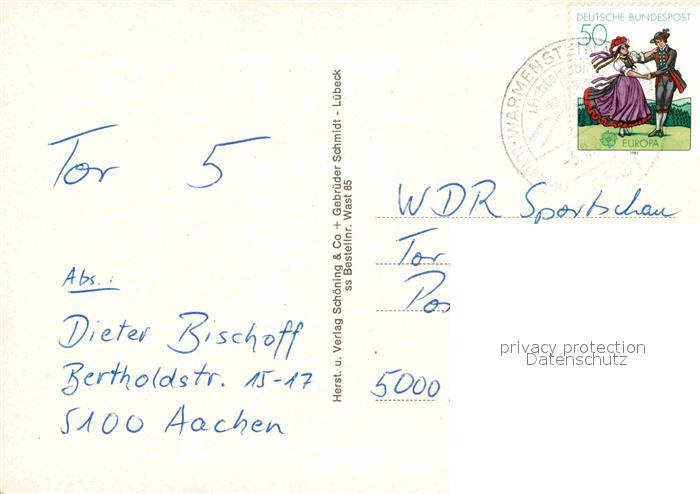 Tor 5
Abs.:
Dieter Bischoff
Bertholdstr. 15-17
5100 Aachen
Herst. u. Verlag Schöning & Co + Gebrüder Schmidt - Lübeck
ss Bestellnr. Wast 85
DEUTSCHE BUNDESPOST
50
EUROPA
1981
WARMENSTEINACH
WDR Sportschau
Tor
Pos
5000
privacy protection
Datenschutz